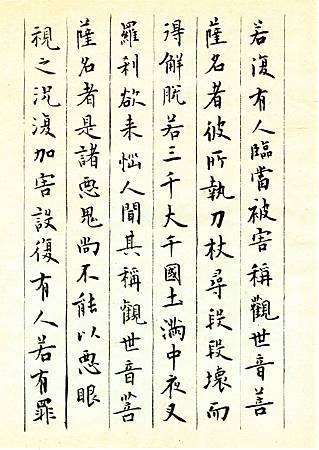 若復有人臨當被害稱觀世音菩
薩名者彼所執刀杖尋段段壞而
得解脫若三千大千國土滿中夜叉
羅剎欲來惱人聞其稱觀世音菩
薩名者是諸惡鬼尚不能以惡眼
視之況復加害設復有人若有罪